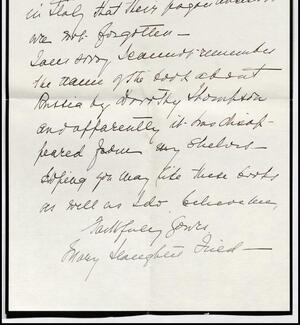 in Italy that their
are not forgotten —
I am sorry I cannot remember
the name of the book about
Russia by Dorothy Thompson
and apparently it has disap-
peared from my shelves —
Hoping you may like these books
as well as I do believe me,
Faithfully yours,
Mary Fried —